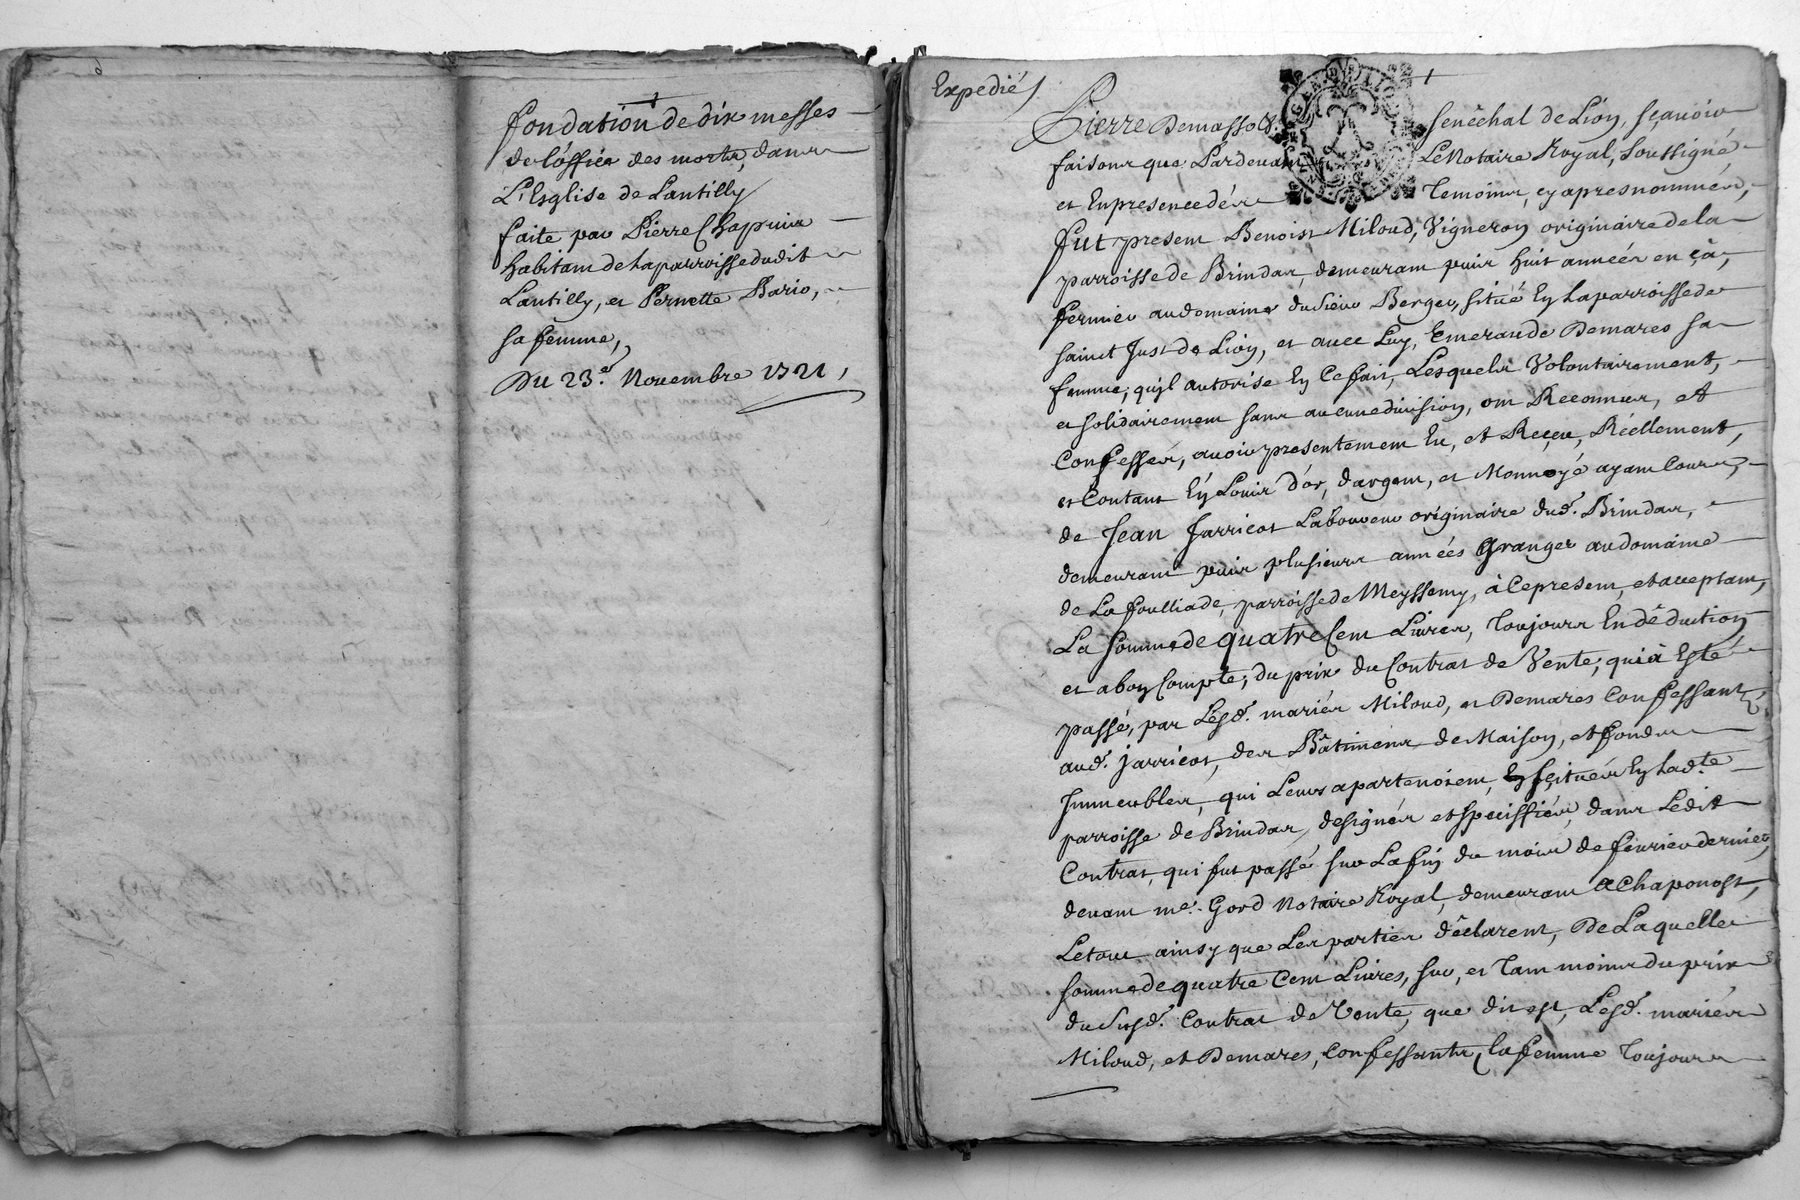 fondation de dix messes
de l'office des morts, dans
L'Esglise de Lantilly
faite par Pierre Chapuis
habitant de la parroisse dudit
Lantilly, et Pernette Bario,
sa femme,
Du 23.e Novembre 1721,
Expedié
Pierre Demassol Senêchal de Lion, sçavoir
faisons que Pardevant Le Notaire Royal, soussigné
et En presence dés Temoins, cy apres nommés,
fut present Benoist Miloud, Vigneron originaire de la
parroisse de Brindas, demeurant puis huit années en çà,
fermier au domaine du Sieur Berger, situé En la parroisse de
sainct Just de Lion, et avec Luy, Emeraude Demares sa
femme, qu'il autorise En ce fait, Lesquels Volontairement,
et solidairement sans aucune division, ont Reconnus, et
Confessés, avoir presentement Eu, et Reçeu, Réellement,
et Contant En Louis d'or, d'argent, et Monnoyé ayant Cours,
de Jean Jarricot Laboureur originaire dud. Brindas,
demeurant puis plusieurs années Granger au domaine
de La foulliade, parroisse de Meyssemy, à ce present, et acceptant,
La somme de quatre Cent Livres, Toujours En déduction
et a bon Compte, du prix du Contrat de Vente, qui à Esté
passé, par Lesd. mariés Miloud, et Demares Confessants,
aud. Jarricot, des Bâtiments de Maison, et fonds
Immeubles, qui Leurs apartenoient, sçitués En lad.te
parroisse de Brindas, designés et speciffiés, dans Ledit
Contrat, qui fut passé sur La fin du mois de fevrier dernier,
devant me. Gord Notaire Royal, demeurant a Chaponost,
Le tout ainsy que Les parties déclarent, De Laquelle
somme de quatre Cent Livres, sur, et Tant moins du prix
du Susd. Contrat de Vente, que dit est, Lesd. mariés
Miloud, et Demares, Confessants, la femme Toujours